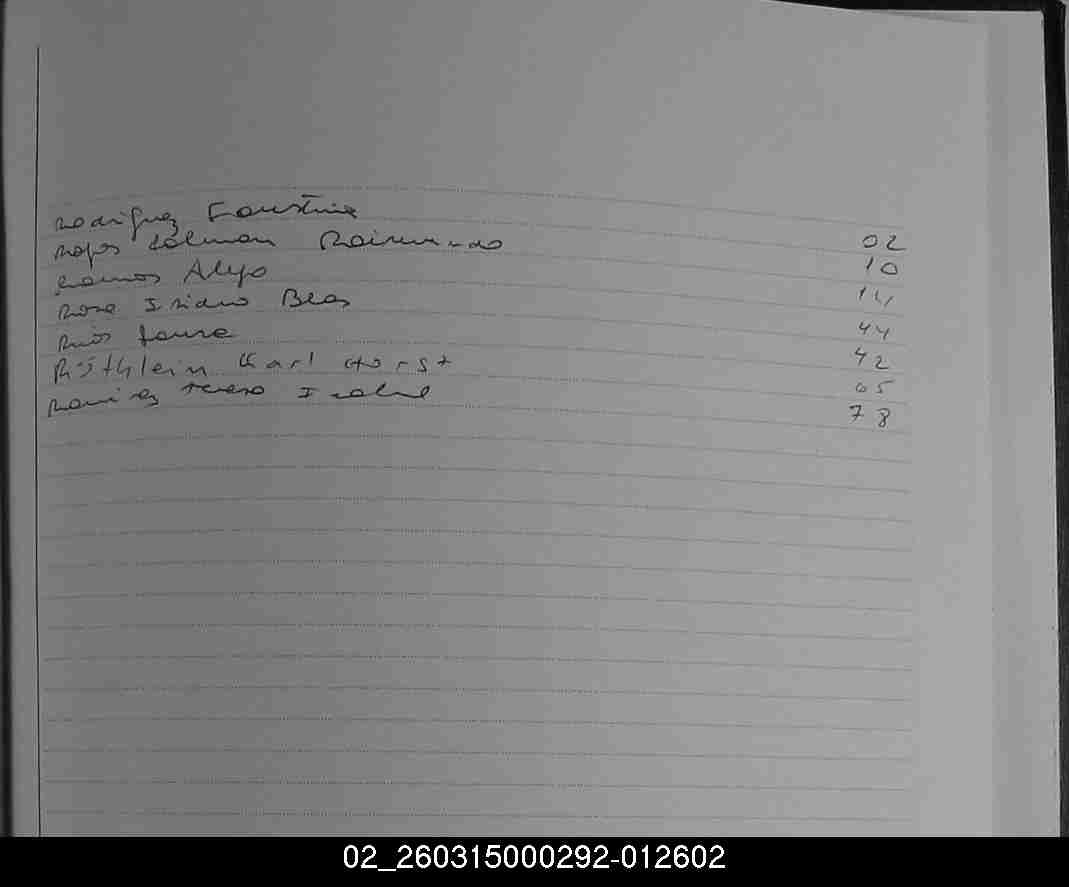 Rodriguez Faustina 02
Rojas Colman Raimundo 10
Ramos Alejo 14
Rosa Isidro Blas 44
Ruis Laura 42
Röthlein Karl Horst 65
Ramirez Teresa Isabel 78
02_260315000292-012602